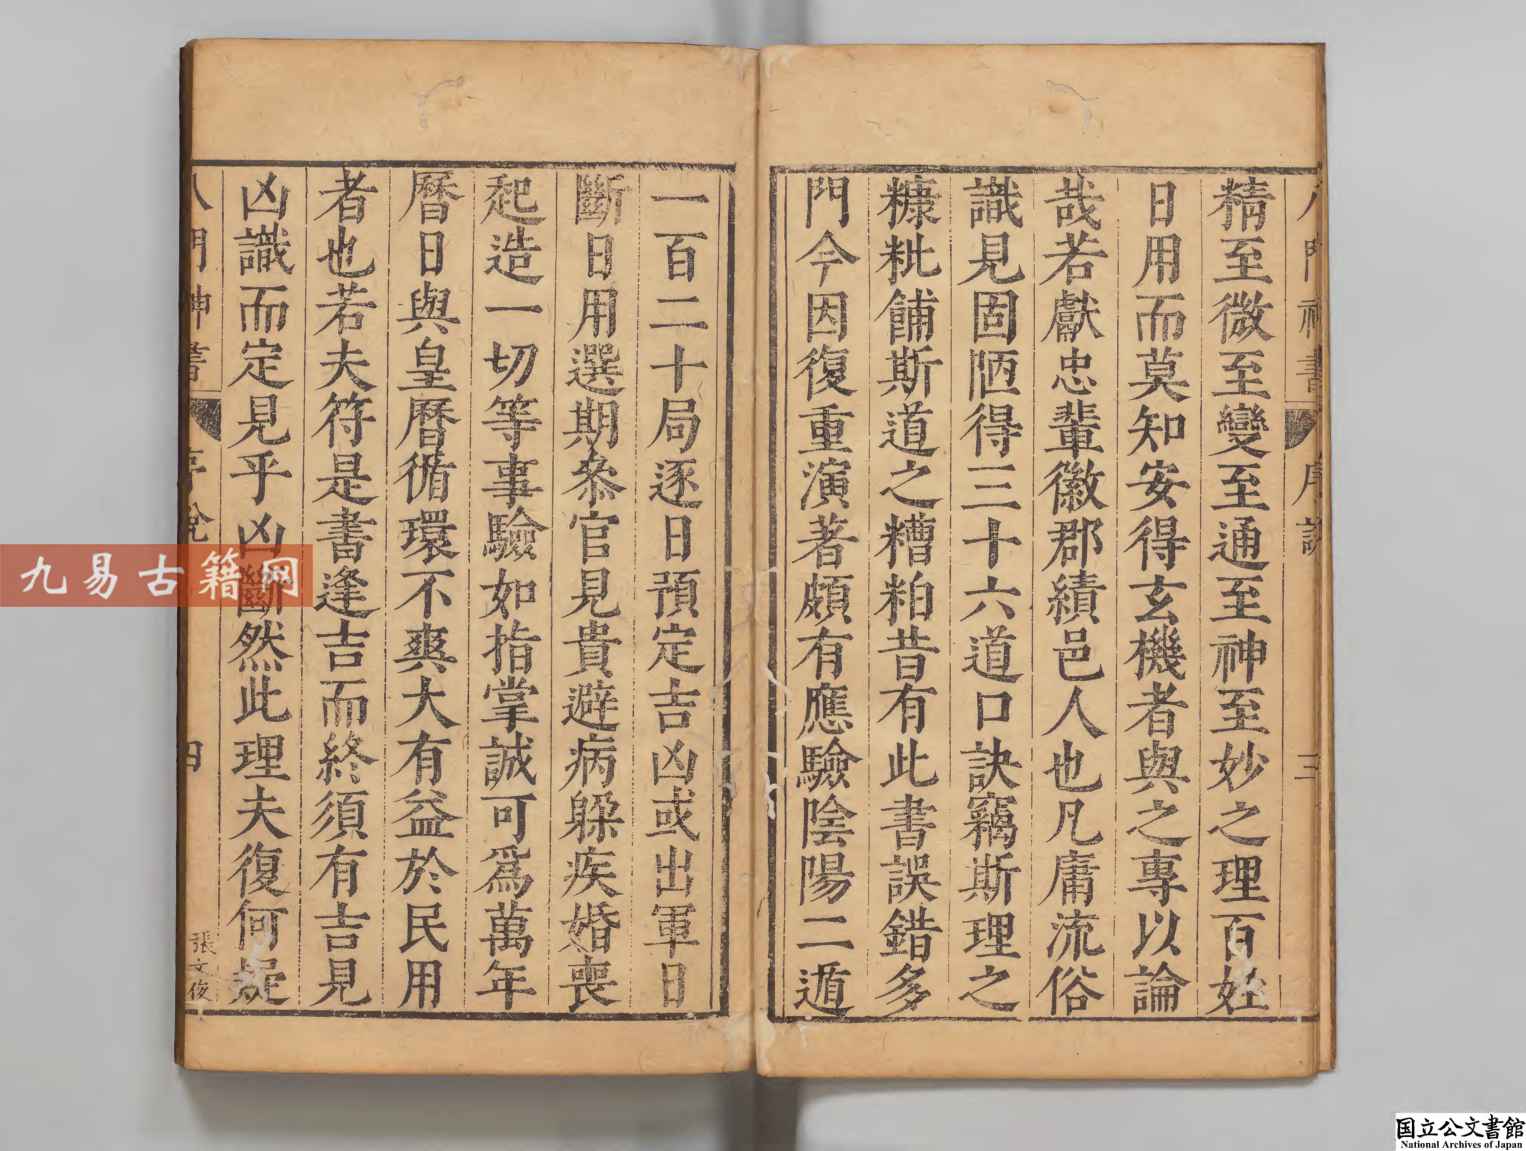 精至微至變至通至神至妙之理百姓
日用而莫知安得玄機者與之專以論
哉若獻忠輩徽郡績邑人也凡庸流俗
識見固陋得三十六道口訣竊斯理之
糠粃餔斯道之糟粕昔有此書誤錯多
門今因復重演著頗有應驗陰陽二遁
一百二十局逐日預定吉凶或出軍日
斷日用選期叅官見貴避病躱疾婚喪
起造一切等事驗如指掌誠可爲萬年
曆日與皇曆循環不爽大有益於民用
者也若夫符是書逢吉而終須有吉見
凶識而定見乎凶斷然此理夫復何疑
八門神書
序說
四
張文俊
八門神書
序說
三
九易古籍网
国立公文書館
National Archives of Japan